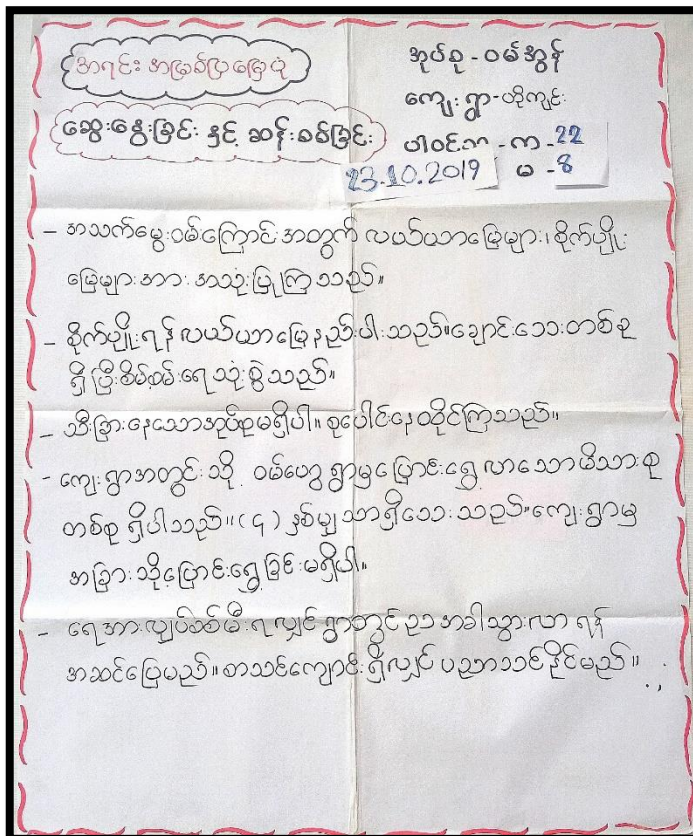 အရင်းအမြစ်ပြမြေပုံ
ဆွေးနွေးခြင်း နှင့် ဆန်းစစ်ခြင်း
အုပ်စု - ဝမ်အွန်
ကျေးရွာ - တိုကျင်း
ပါဝင်သူ - ကျ - 22
23.10.2019 မ - 8
- အသက်မွေးဝမ်းကြောင်းအတွက် လယ်ယာမြေများ၊ စိုက်ပျိုး
မြေများအား အသုံးပြုကြသည်။
- စိုက်ပျိုးရန် လယ်ယာမြေနည်းပါးသည်။ ချောင်းသေးတစ်ခု
ရှိပြီးစိမ့်စမ်းရေသုံးစွဲသည်။
- သီးခြားနေသောအုပ်စုမရှိပါ။ စုပေါင်းနေထိုင်ကြသည်။
- ကျေးရွာအတွင်းသို့ ဝမ်ဟွေ့ရွာမှပြောင်းရွှေ့လာသောမိသားစု
တစ်စု ရှိပါသည်။ (၄) နှစ်မျှသာရှိသေးသည်။ ကျေးရွာမှ
အခြားသို့ပြောင်းရွှေ့ခြင်းမရှိပါ။
- ရေအားလျှပ်စစ်မီးရလျှင် ရွာတွင်ညအခါသွားလာရန်
အဆင်ပြေမည်။ စာသင်ကျောင်းရှိလျှင် ပညာသင်နိုင်မည်။